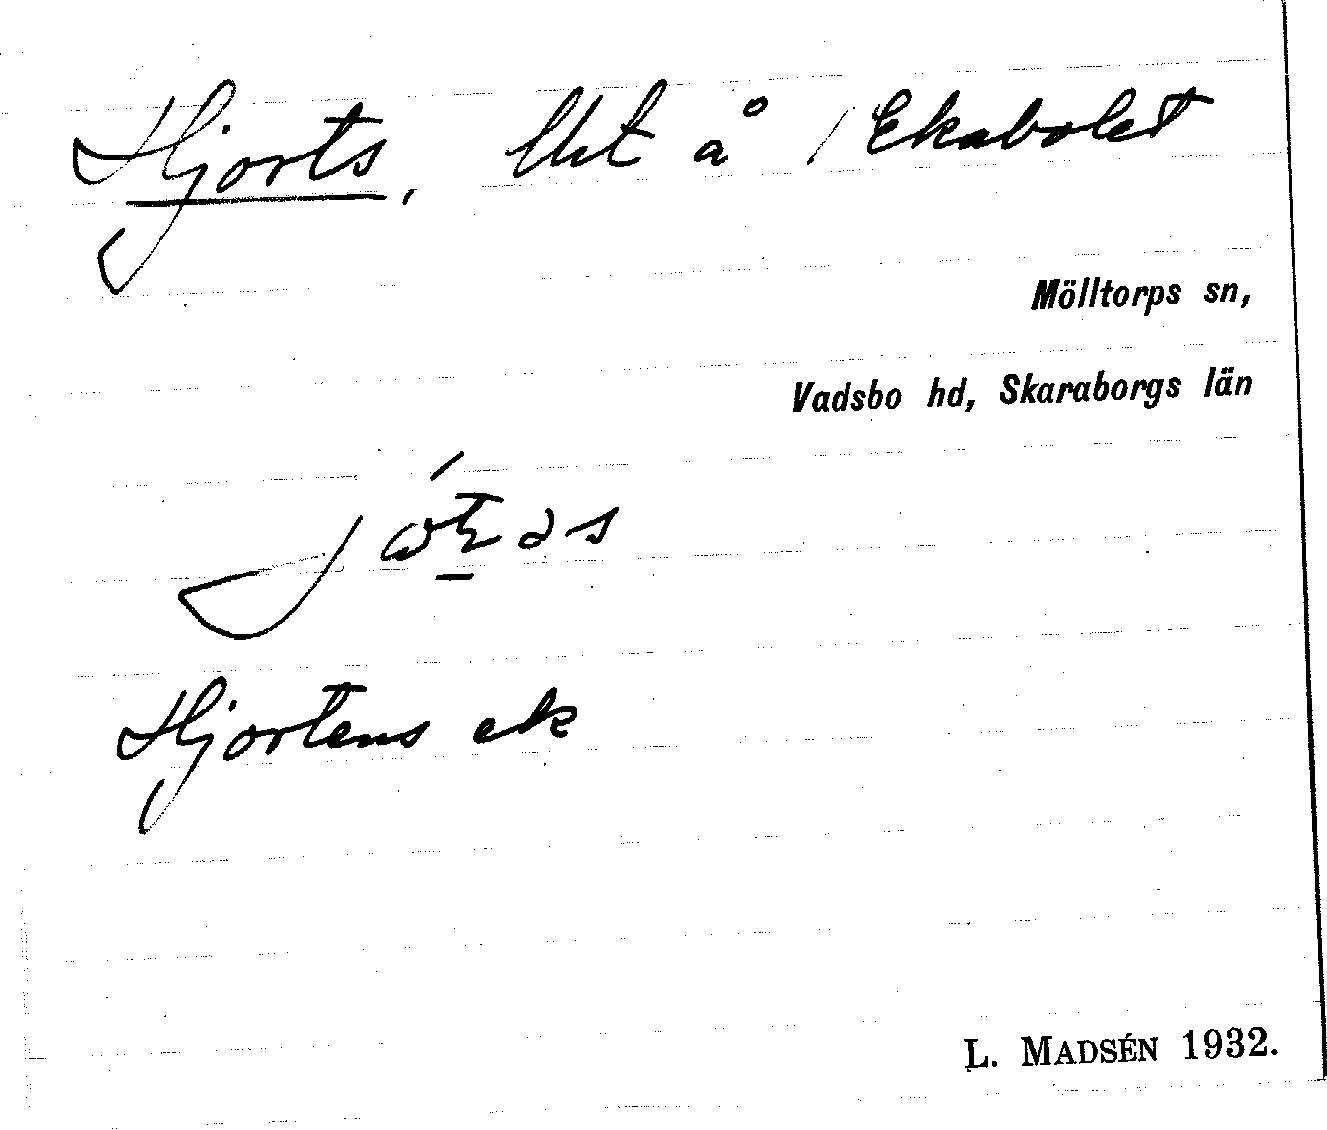 Hjorts, lht å Ekabolet
Mölltorps sn,
Vadsbo hd, Skaraborgs län
Hjortens ek
L. MADSÉN 1932.